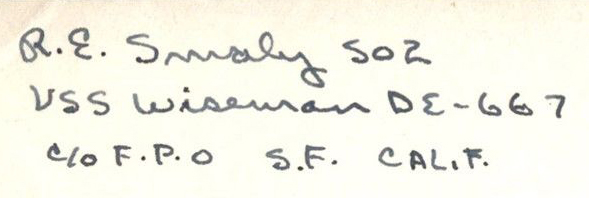 R.E. Smaly SO2
USS Wiseman DE-667
c/o F.P.O S.F. CALIF.